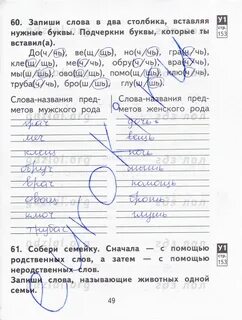 60. Запиши слова в два столбика, вставляя
нужные буквы. Подчеркни буквы, которые ты
вставил(а).
У1
стр.
153
До(ч/чь), ве(щ/щь), но(ч/чь), гра(ч/чь),
кле(щ/щь), ме(ч/чь), обру(ч/чь), вра(ч/чь),
мы(ш/шь), ово(щ/щь), помо(щ/щь), клю(ч/чь),
труба(ч/чь), бро(ш/шь), глу(ш/шь)
Слова-названия предметов мужского рода
Слова-названия предметов женского рода
грач
дочь
меч
вещь
клещ
ночь
обруч
мышь
врач
помощь
овощ
брошь
ключ
глушь
трубач
61. Собери семейку. Сначала — с помощью
родственных слов, а затем — с помощью
неродственных слов.
У1
стр.
153
Запиши слова, называющие животных одной
семьи.
49